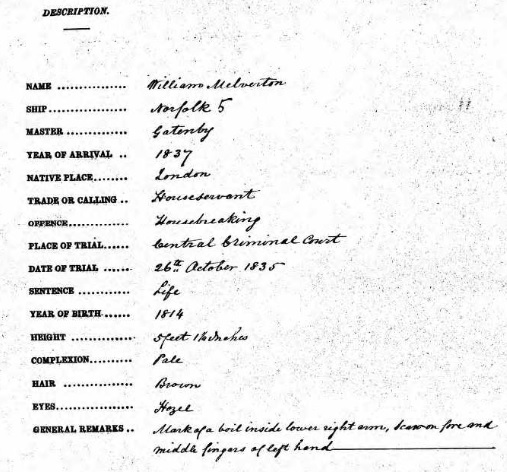 DESCRIPTION.
NAME ................ William Melverton
SHIP................... Norfolk 5
MASTER .............. Gatenby
YEAR OF ARRIVAL .. 1837
NATIVE PLACE........ London
TRADE OR CALLING .. Houseservant
OFFENCE............... Housebreaking
PLACE OF TRIAL...... Central Criminal Court
DATE OF TRIAL ....... 26th October 1835
SENTENCE ............ Life
YEAR OF BIRTH ...... 1814
HEIGHT ............... 5 feet 1½ Inches
COMPLEXION.......... Pale
HAIR ................. Brown
EYES.................. Hazel
GENERAL REMARKS .. Mark of a boil inside lower right arm, Scar on fore and
middle fingers of left hand